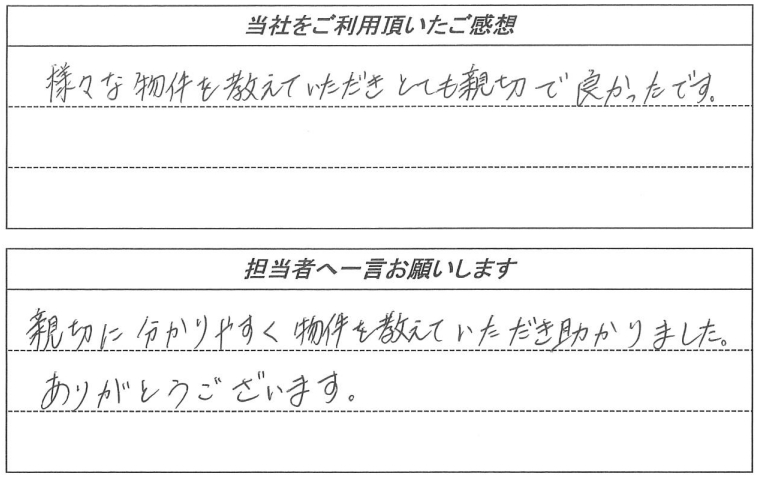 当社をご利用頂いたご感想
様々な物件を教えていただきとても親切で良かったです。
担当者へ一言お願いします
親切に分かりやすく物件を教えていただき助かりました。
ありがとうございます。